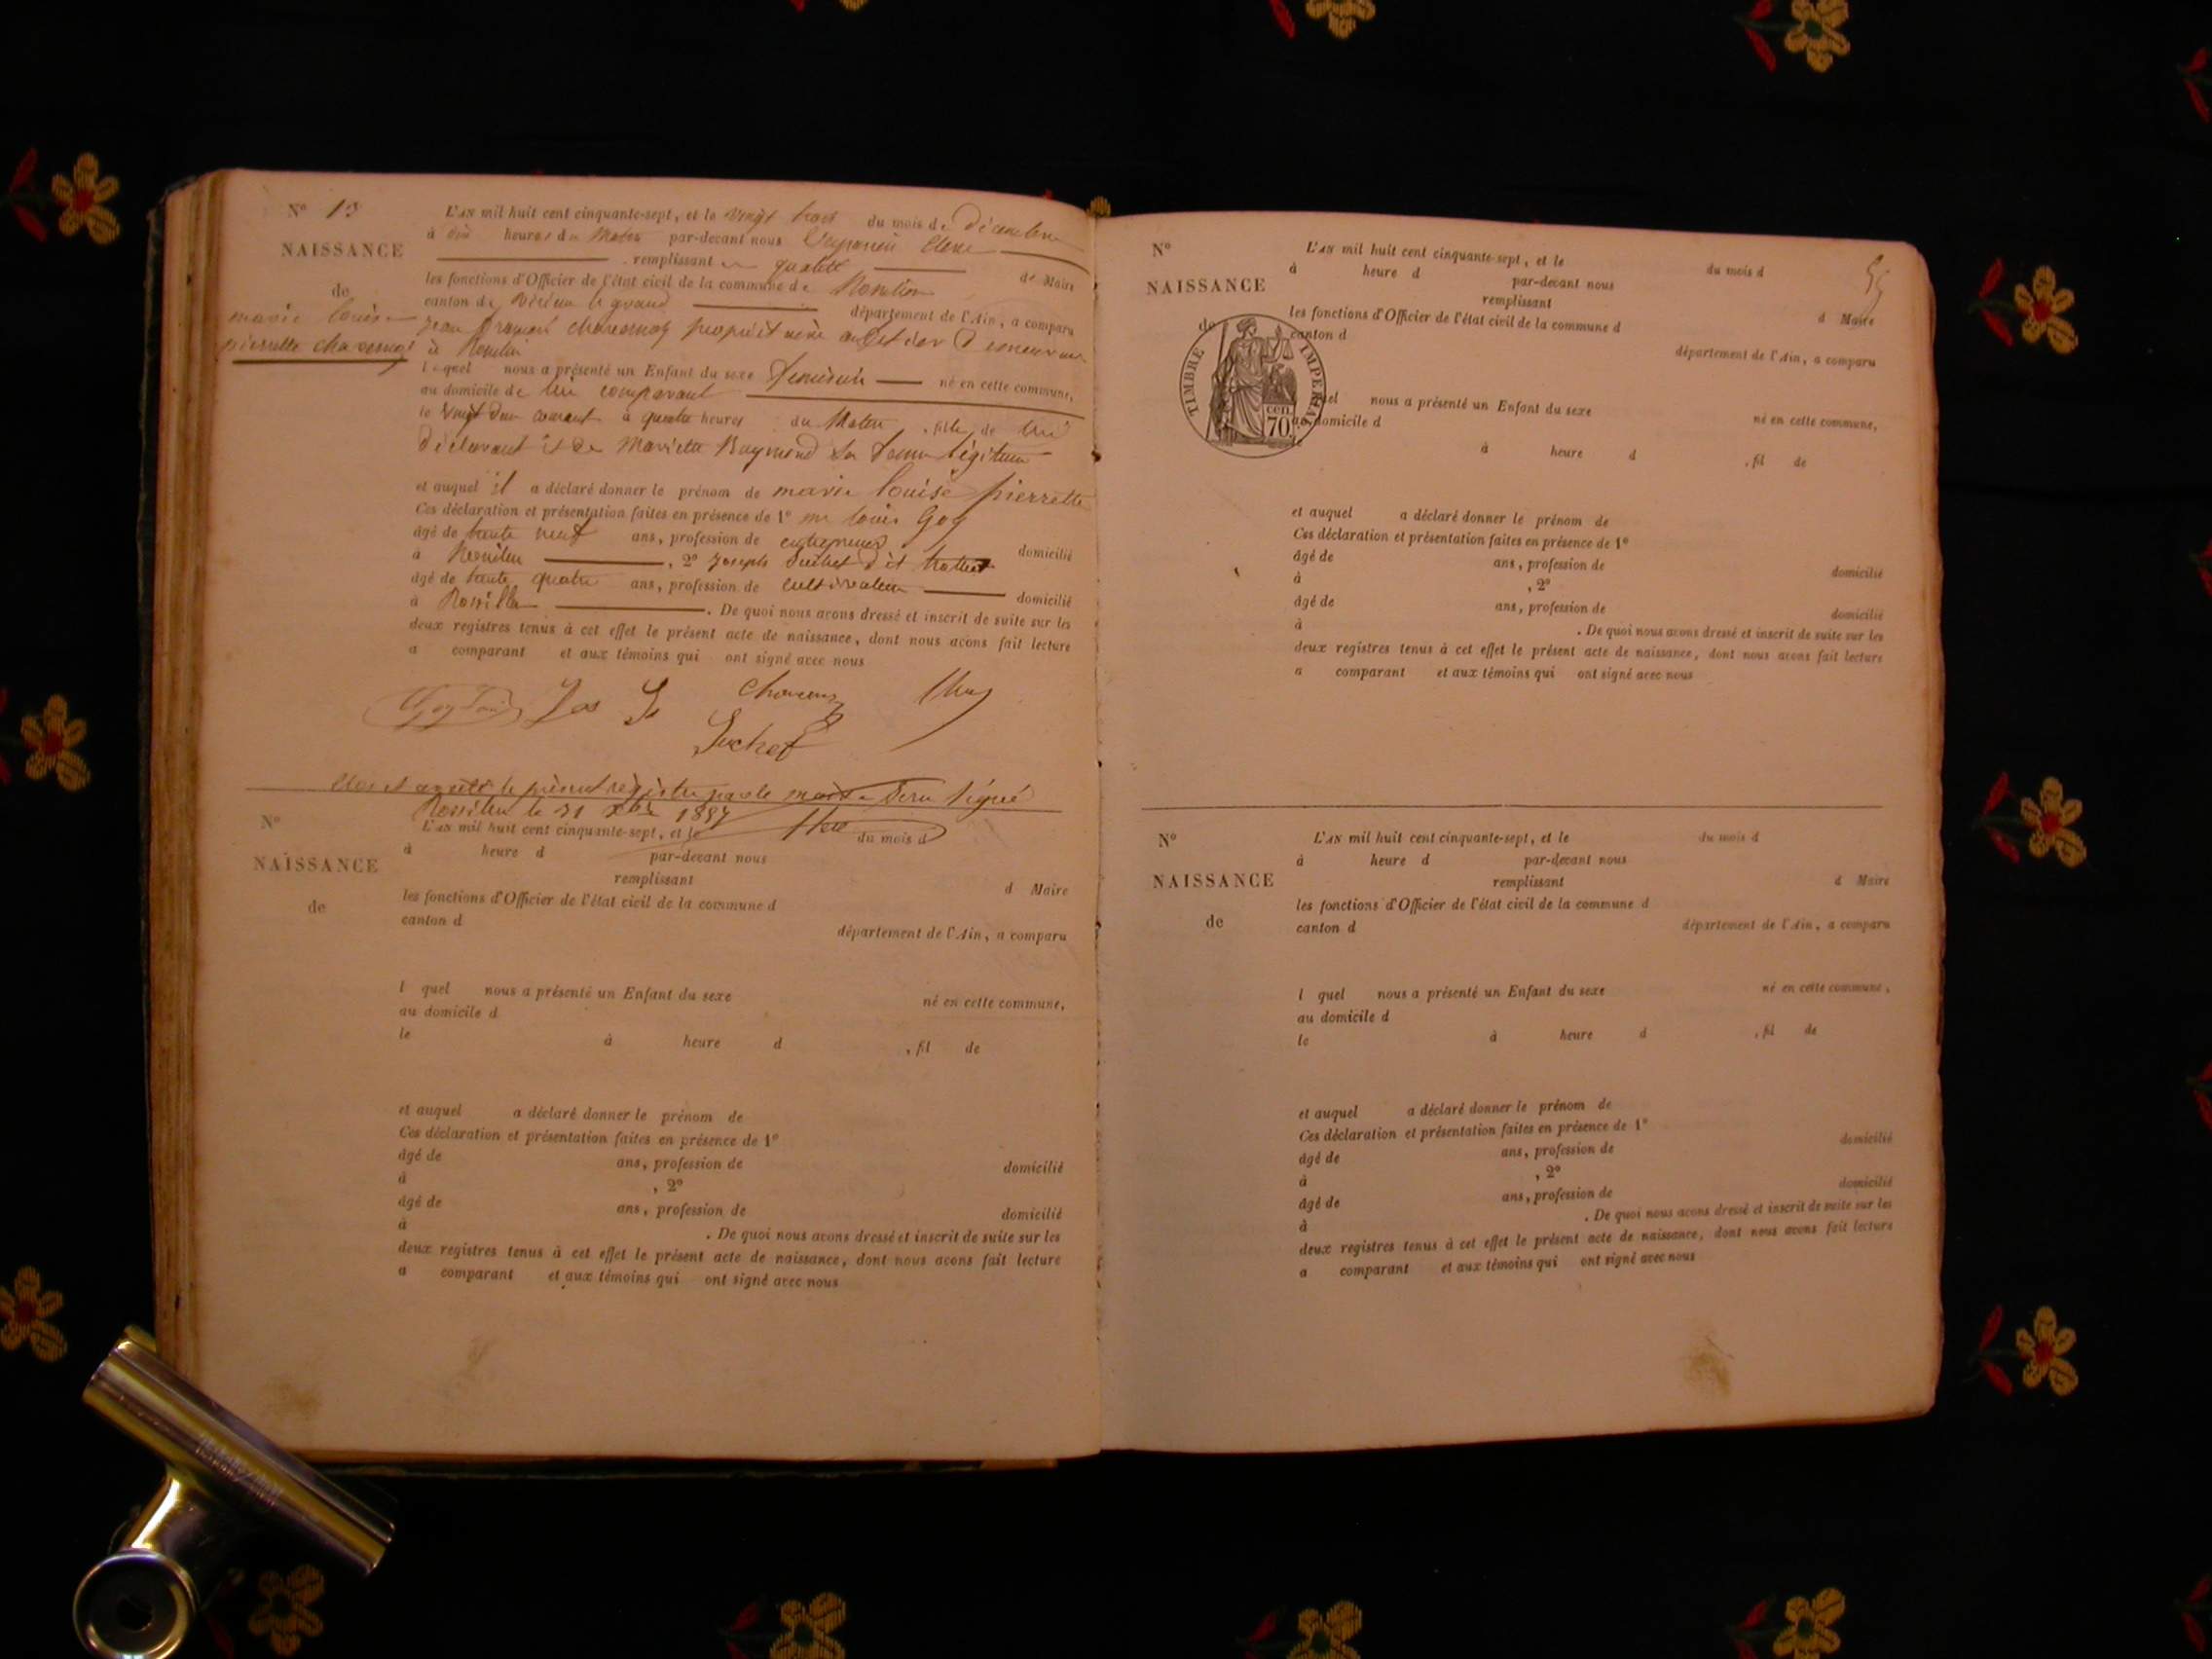 N° 13
NAISSANCE
de
marie louise
pierrette chavornoz
L'AN mil huit cent cinquante-sept, et le vingt trois du mois de décembre
à dix heures du Matin par-devant nous
remplissant en qualité de Maire
les fonctions d'Officier de l'état civil de la commune de Rossillon
canton de Virieu le grand département de l'Ain, a comparu
jean propriétaire
à Rossillon
lequel nous a présenté un Enfant du sexe féminin né en cette commune,
au domicile de lui comparant
le vingt deux courant à quatre heures du Matin, fille de lui
déclarant et de Mariette Raymond sa femme légitime
et auquel il a déclaré donner le prénom de marie louise pierrette
Ces déclaration et présentation faites en présence de 1° mr louis Goy
âgé de trente neuf ans, profession de domicilié
à Rossillon, 2° joseph Suchet dit
âgé de trente quatre ans, profession de cultivateur domicilié
à Rossillon. De quoi nous avons dressé et inscrit de suite sur les
deux registres tenus à cet effet le présent acte de naissance, dont nous avons fait lecture
a comparant et aux témoins qui ont signé avec nous
Goy Louis
Suchet
Clos et arrêté le présent registre par le maire sous signé
Rossillon le 31 Xbre 1857
N°
NAISSANCE
de
L'AN mil huit cent cinquante-sept, et le du mois d
à heure d par-devant nous
remplissant d Maire
les fonctions d'Officier de l'état civil de la commune d
canton d département de l'Ain, a comparu
l quel nous a présenté un Enfant du sexe né en cette commune,
au domicile d
le à heure d , fil de
et auquel a déclaré donner le prénom de
Ces déclaration et présentation faites en présence de 1°
âgé de ans, profession de domicilié
à , 2°
âgé de ans, profession de domicilié
à . De quoi nous avons dressé et inscrit de suite sur les
deux registres tenus à cet effet le présent acte de naissance, dont nous avons fait lecture
a comparant et aux témoins qui ont signé avec nous
N°
NAISSANCE
de
TIMBRE IMPERIAL
70 cen.
L'AN mil huit cent cinquante-sept, et le du mois d
à heure d par-devant nous
remplissant d Maire
les fonctions d'Officier de l'état civil de la commune d
canton d département de l'Ain, a comparu
quel nous a présenté un Enfant du sexe né en cette commune,
au domicile d
le à heure d , fil de
et auquel a déclaré donner le prénom de
Ces déclaration et présentation faites en présence de 1°
âgé de ans, profession de domicilié
à , 2°
âgé de ans, profession de domicilié
à . De quoi nous avons dressé et inscrit de suite sur les
deux registres tenus à cet effet le présent acte de naissance, dont nous avons fait lecture
a comparant et aux témoins qui ont signé avec nous
N°
NAISSANCE
de
L'AN mil huit cent cinquante-sept, et le du mois d
à heure d par-devant nous
remplissant d Maire
les fonctions d'Officier de l'état civil de la commune d
canton d département de l'Ain, a comparu
l quel nous a présenté un Enfant du sexe né en cette commune,
au domicile d
le à heure d , fil de
et auquel a déclaré donner le prénom de
Ces déclaration et présentation faites en présence de 1°
âgé de ans, profession de domicilié
à , 2°
âgé de ans, profession de domicilié
à . De quoi nous avons dressé et inscrit de suite sur les
deux registres tenus à cet effet le présent acte de naissance, dont nous avons fait lecture
a comparant et aux témoins qui ont signé avec nous